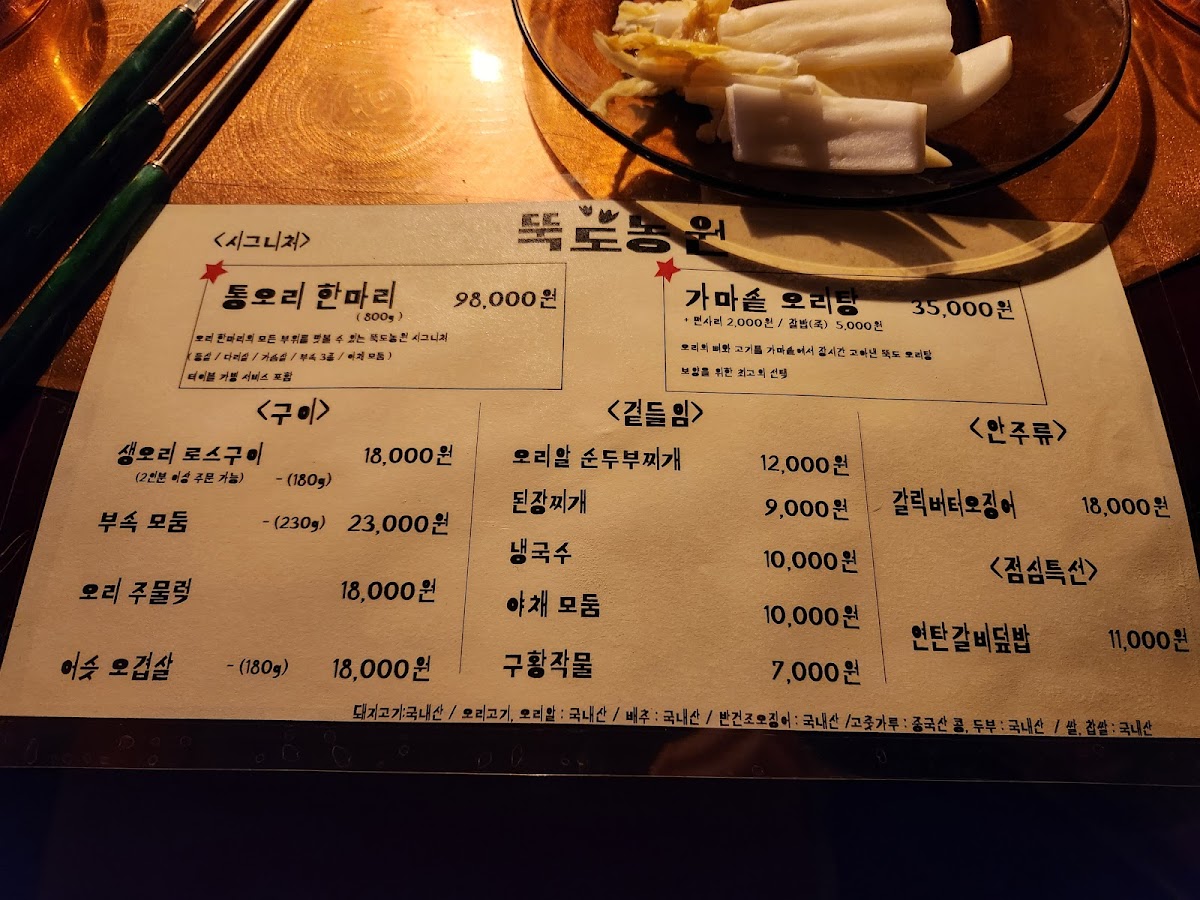 뚝도농원
<시그니처>
통오리 한마리 98,000원
(800g)
오리 한마리의 모든 부위를 맛볼 수 있는 뚝도농원 시그니처
(통살 / 다리살 / 가슴살 / 부속 3종 / 야채 모둠)
테이블 가별 서비스 포함
가마솥 오리탕 35,000원
+ 면사리 2,000원 / 찰밥(죽) 5,000원
오리의 뼈와 고기를 가마솥에서 장시간 고아낸 뚝도 오리탕
보양을 위한 최고의 선택
<구이>
생오리 로스구이 18,000원
(2인분 이상 주문 가능) -(180g)
부속 모둠 -(230g) 23,000원
오리 주물럭 18,000원
어슷 오겹살 -(180g) 18,000원
<곁들임>
오리알 순두부찌개 12,000원
된장찌개 9,000원
냉국수 10,000원
야채 모둠 10,000원
구황작물 7,000원
<안주류>
갈릭버터오징어 18,000원
<점심특선>
연탄갈비덮밥 11,000원
돼지고기:국내산 / 오리고기, 오리알 : 국내산 / 배추 : 국내산 / 반건조오징어 : 국내산 /고춧가루 : 중국산 콩, 두부 : 국내산 / 쌀, 찹쌀 : 국내산